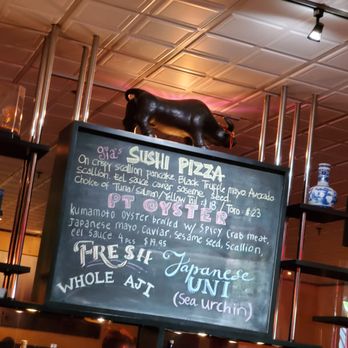 gja's
SUSHI PIZZA
On crispy scallion pancake. Black Truffle mayo. Avocado
scallion. Eel sauce caviar sesame seed
Choice of Tuna/Salmon/Yellow Tail $18 / Toro $23
PT OYSTER
Kumamoto oyster broiled w/ Spicy Crab meat,
Japanese mayo, Caviar, Sesame seed, Scallion,
eel sauce 4 pcs $19.95
FRESH
WHOLE AJI
Japanese
UNI
(Sea urchin)